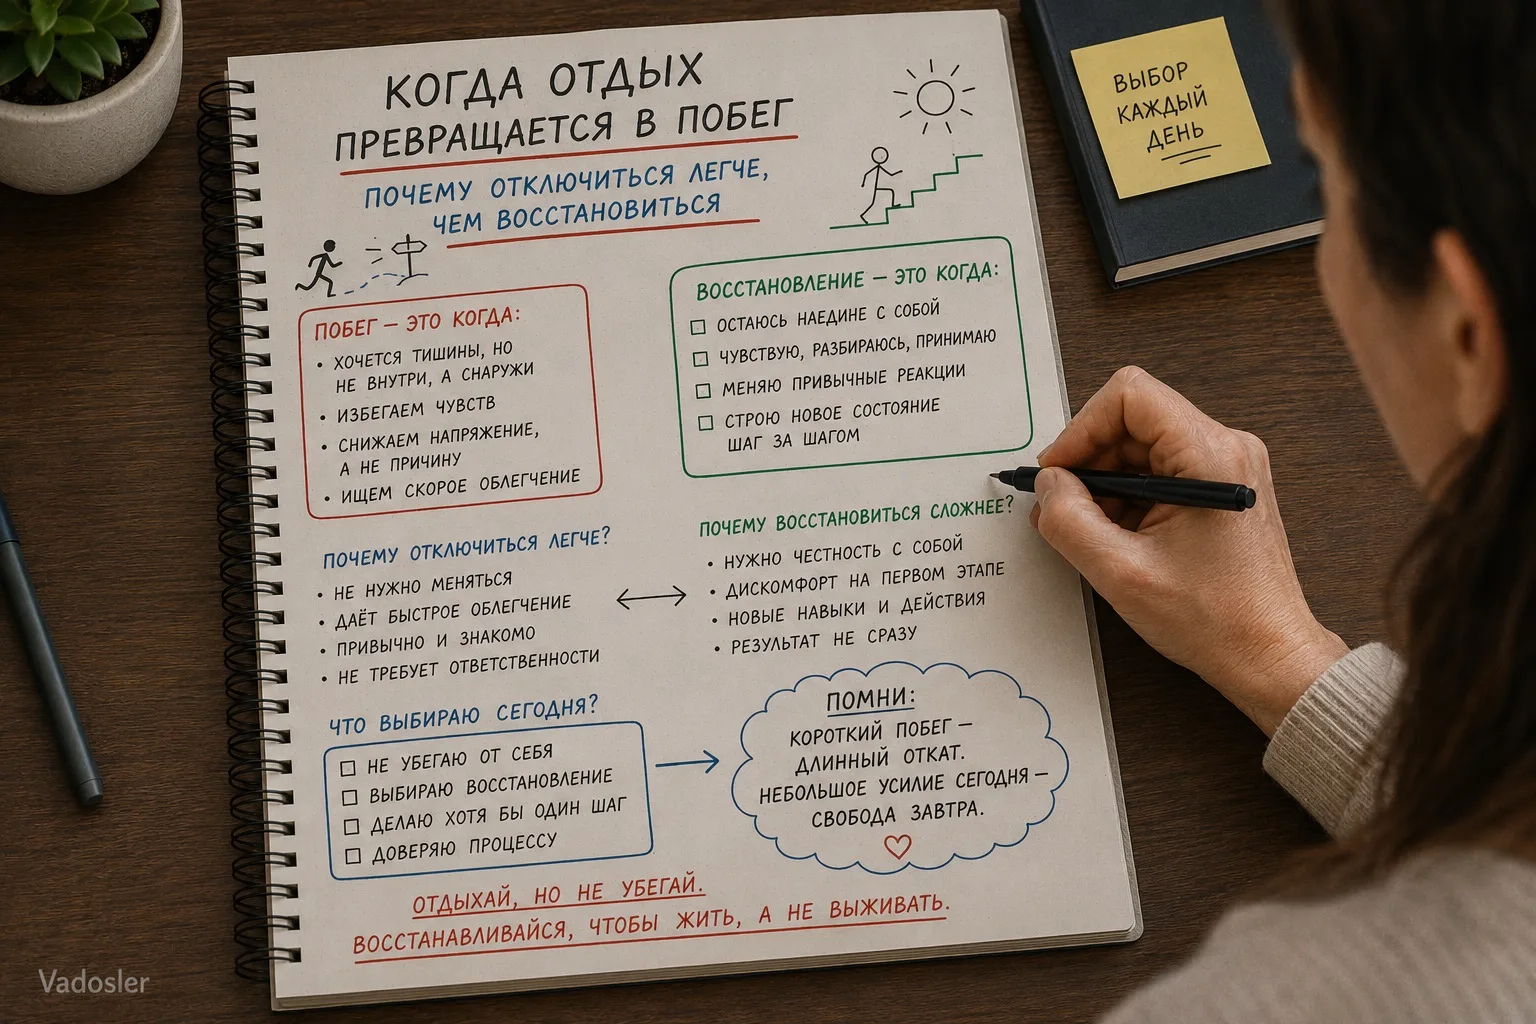 КОГДА ОТДЫХ
ПРЕВРАЩАЕТСЯ В ПОБЕГ
ПОЧЕМУ ОТКЛЮЧИТЬСЯ ЛЕГЧЕ,
ЧЕМ ВОССТАНОВИТЬСЯ
ПОБЕГ — ЭТО КОГДА:
• ХОЧЕТСЯ ТИШИНЫ, НО
НЕ ВНУТРИ, А СНАРУЖИ
• ИЗБЕГАЕМ ЧУВСТВ
• СНИЖАЕМ НАПРЯЖЕНИЕ,
А НЕ ПРИЧИНУ
• ИЩЕМ СКОРОЕ ОБЛЕГЧЕНИЕ
ВОССТАНОВЛЕНИЕ — ЭТО КОГДА:
☐ ОСТАЮСЬ НАЕДИНЕ С СОБОЙ
☐ ЧУВСТВУЮ, РАЗБИРАЮСЬ, ПРИНИМАЮ
☐ МЕНЯЮ ПРИВЫЧНЫЕ РЕАКЦИИ
☐ СТРОЮ НОВОЕ СОСТОЯНИЕ
ШАГ ЗА ШАГОМ
ПОЧЕМУ ОТКЛЮЧИТЬСЯ ЛЕГЧЕ?
• НЕ НУЖНО МЕНЯТЬСЯ
• ДАЁТ БЫСТРОЕ ОБЛЕГЧЕНИЕ
• ПРИВЫЧНО И ЗНАКОМО
• НЕ ТРЕБУЕТ ОТВЕТСТВЕННОСТИ
ПОЧЕМУ ВОССТАНОВИТЬСЯ СЛОЖНЕЕ?
• НУЖНО ЧЕСТНОСТЬ С СОБОЙ
• ДИСКОМФОРТ НА ПЕРВОМ ЭТАПЕ
• НОВЫЕ НАВЫКИ И ДЕЙСТВИЯ
• РЕЗУЛЬТАТ НЕ СРАЗУ
ЧТО ВЫБИРАЮ СЕГОДНЯ?
☐ НЕ УБЕГАЮ ОТ СЕБЯ
☐ ВЫБИРАЮ ВОССТАНОВЛЕНИЕ
☐ ДЕЛАЮ ХОТЯ БЫ ОДИН ШАГ
☐ ДОВЕРЯЮ ПРОЦЕССУ
ПОМНИ:
КОРОТКИЙ ПОБЕГ —
ДЛИННЫЙ ОТКАТ.
НЕБОЛЬШОЕ УСИЛИЕ СЕГОДНЯ —
СВОБОДА ЗАВТРА.
ОТДЫХАЙ, НО НЕ УБЕГАЙ.
ВОССТАНАВЛИВАЙСЯ, ЧТОБЫ ЖИТЬ, А НЕ ВЫЖИВАТЬ.
ВЫБОР
КАЖДЫЙ
ДЕНЬ
Vadosler